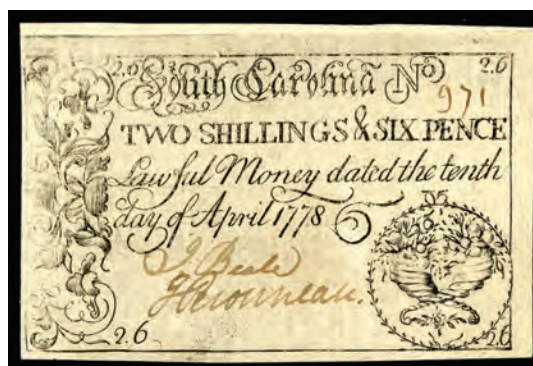 2.6 South Carolina No 2.6
971
TWO SHILLINGS & SIX PENCE
Lawful Money dated the tenth
day of April 1778
J Beale
2.6 2.6